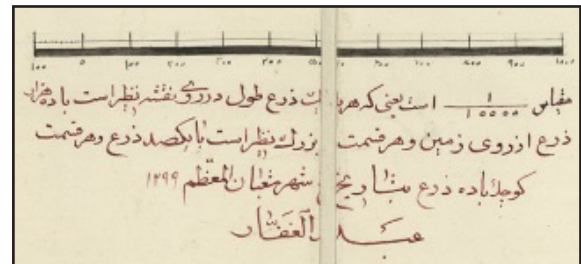 ۱۰۰ ۰ ۱۰۰ ۲۰۰ ۳۰۰ ۴۰۰ ۵۰۰ ۶۰۰ ۷۰۰ ۸۰۰ ۹۰۰ ۱۰۰۰
مقیاس ۱/۱۰۰۰۰ است یعنی که هر ذرع طول در روی نقشه نظیر است با ده هزار
ذرع از روی زمین و هر قسمت بزرك نظیر است با یکصد ذرع و هر قسمت
کوچك با ده ذرع بتاریخ شهر شعبان المعظّم ۱۲۹۹
عبد الغفّار